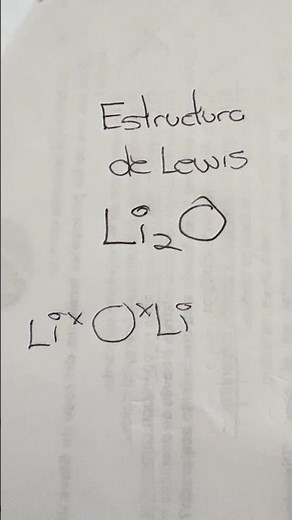 Estructura
de Lewis
Li₂O
Liˣ OˣLi